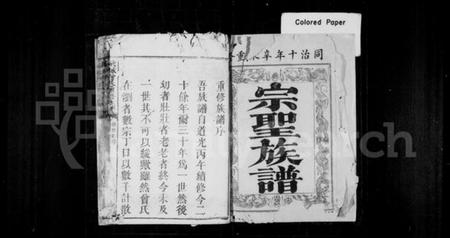 Colored Paper
同治十年辛未重
宗聖族譜
重修族譜序
吾族譜自道光丙午續修今二
十餘年爾三十年為一世然後
幼者壯壯者老老者終今未及
一世其不可以緩歟雖然曾氏
在瀏者數宗丁口以數千計散